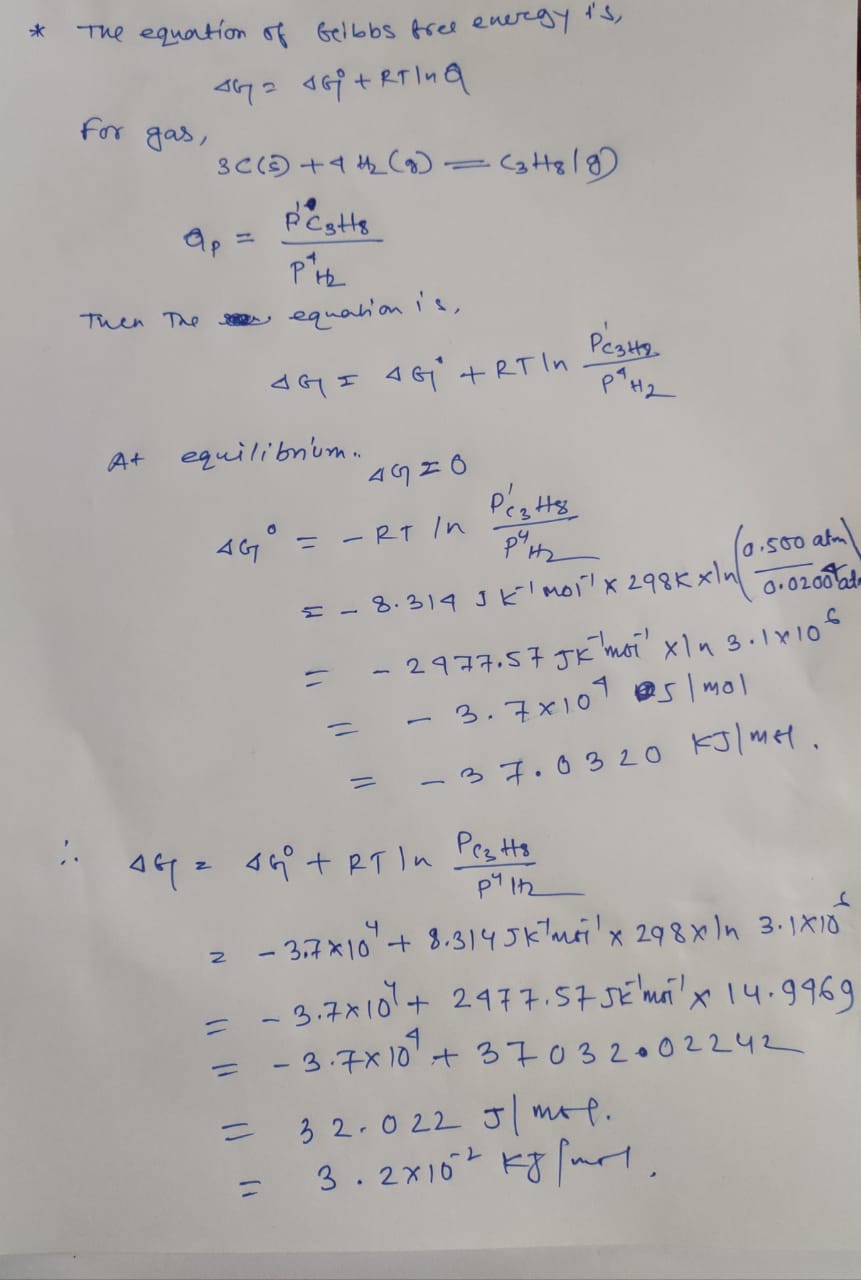 * The equation of Geibbs free energy is,
ΔG = ΔG° + RT ln Q
For gas,
3C(s) + 4 H2 (g) = C3H8(g)
Qp = P¹C3H8 / P⁴H2
Then The equation is,
ΔG = ΔG° + RT ln P¹C3H8 / P⁴H2
At equilibrium.. ΔG = 0
ΔG° = - RT ln P¹C3H8 / P⁴H2
= - 8.314 J K⁻¹ mol⁻¹ x 298K x ln (0.500 atm / 0.0200⁴ atm
= - 2477.57 JK⁻¹mol⁻¹ x ln 3.1x10⁶
= - 3.7x10⁴ J/mol
= - 37.0320 KJ/mol.
∴ ΔG = ΔG° + RT ln PC3H8 / P⁴H2
= - 3.7x10⁴ + 8.314 JK⁻¹mol⁻¹ x 298 x ln 3.1x10⁶
= - 3.7x10⁴ + 2477.57 JK⁻¹mol⁻¹ x 14.9469
= - 3.7x10⁴ + 37032.02242
= 32.022 J/mol.
= 3.2x10⁻² KJ/mol.